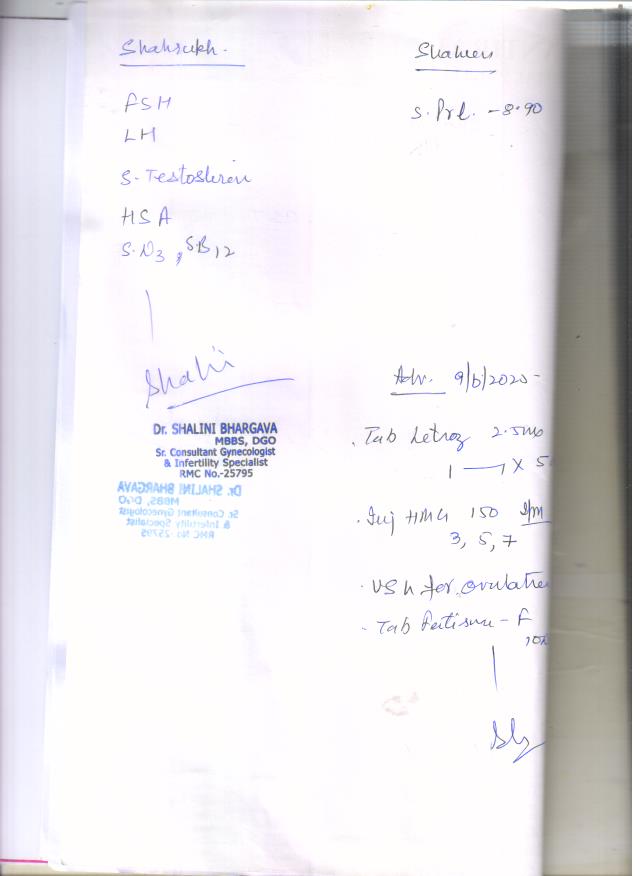 Shahrukh.
FSH
LH
S. Testosteron
HSA
S. D3, SB12
Shalini
Dr. SHALINI BHARGAVA
MBBS, DGO
Sr. Consultant Gynecologist
& Infertility Specialist
RMC No.-25795
Dr. SHALINI BHARGAVA
MBBS, DGO
Sr. Consultant Gynecologist
& Infertility Specialist
RMC No.-25795
Shaheen
S. Prl. - 8.90
Adv. 9/6/2020 -
. Tab Letroz 2.5mg
1 — 1 X 5
. Inj HMG 150 I/m
3, 5, 7
. USG for ovulation
. Tab - F